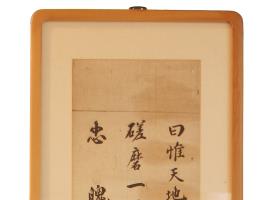 曰惟天地
磋磨一
忠魄